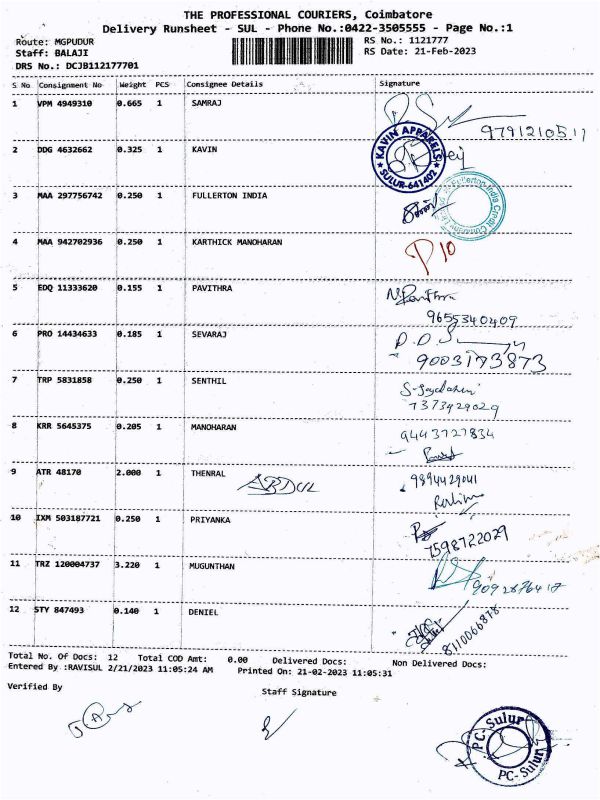 THE PROFESSIONAL COURIERS, Coimbatore
Delivery Runsheet - SUL - Phone No.:0422-3505555 - Page No.:1
Route: MGPUDUR
RS No.: 1121777
Staff: BALAJI
RS Date: 21-Feb-2023
DRS No.: DCJB112177701
S No Consignment No Weight PCS Consignee Details Signature
1 VPM 4949310 0.665 1 SAMRAJ
9791210511
2 DDG 4632662 0.325 1 KAVIN
KAVIN APPARELS
SULUR-641402
3 MAA 297756742 0.250 1 FULLERTON INDIA
Fullerton India Credit Company
4 MAA 942702936 0.250 1 KARTHICK MANOHARAN
P10
5 EDQ 11333620 0.155 1 PAVITHRA
N. Pavithra
9655340409
6 PRO 14434633 0.185 1 SEVARAJ
9003173873
7 TRP 5831858 0.250 1 SENTHIL
7373929029
8 KRR 5645375 0.205 1 MANOHARAN
9443727834
9 ATR 48170 2.000 1 THENRAL
ABDUL
9894429041
Rahim
10 IXM 503187721 0.250 1 PRIYANKA
7598722029
11 TRZ 120004737 3.220 1 MUGUNTHAN
9092876417
12 STY 847493 0.140 1 DENIEL
8110066878
Total No. Of Docs: 12 Total COD Amt: 0.00 Delivered Docs: Non Delivered Docs:
Entered By :RAVISUL 2/21/2023 11:05:24 AM Printed On: 21-02-2023 11:05:31
Verified By
Staff Signature
PC-Sulur
PC-Sulur